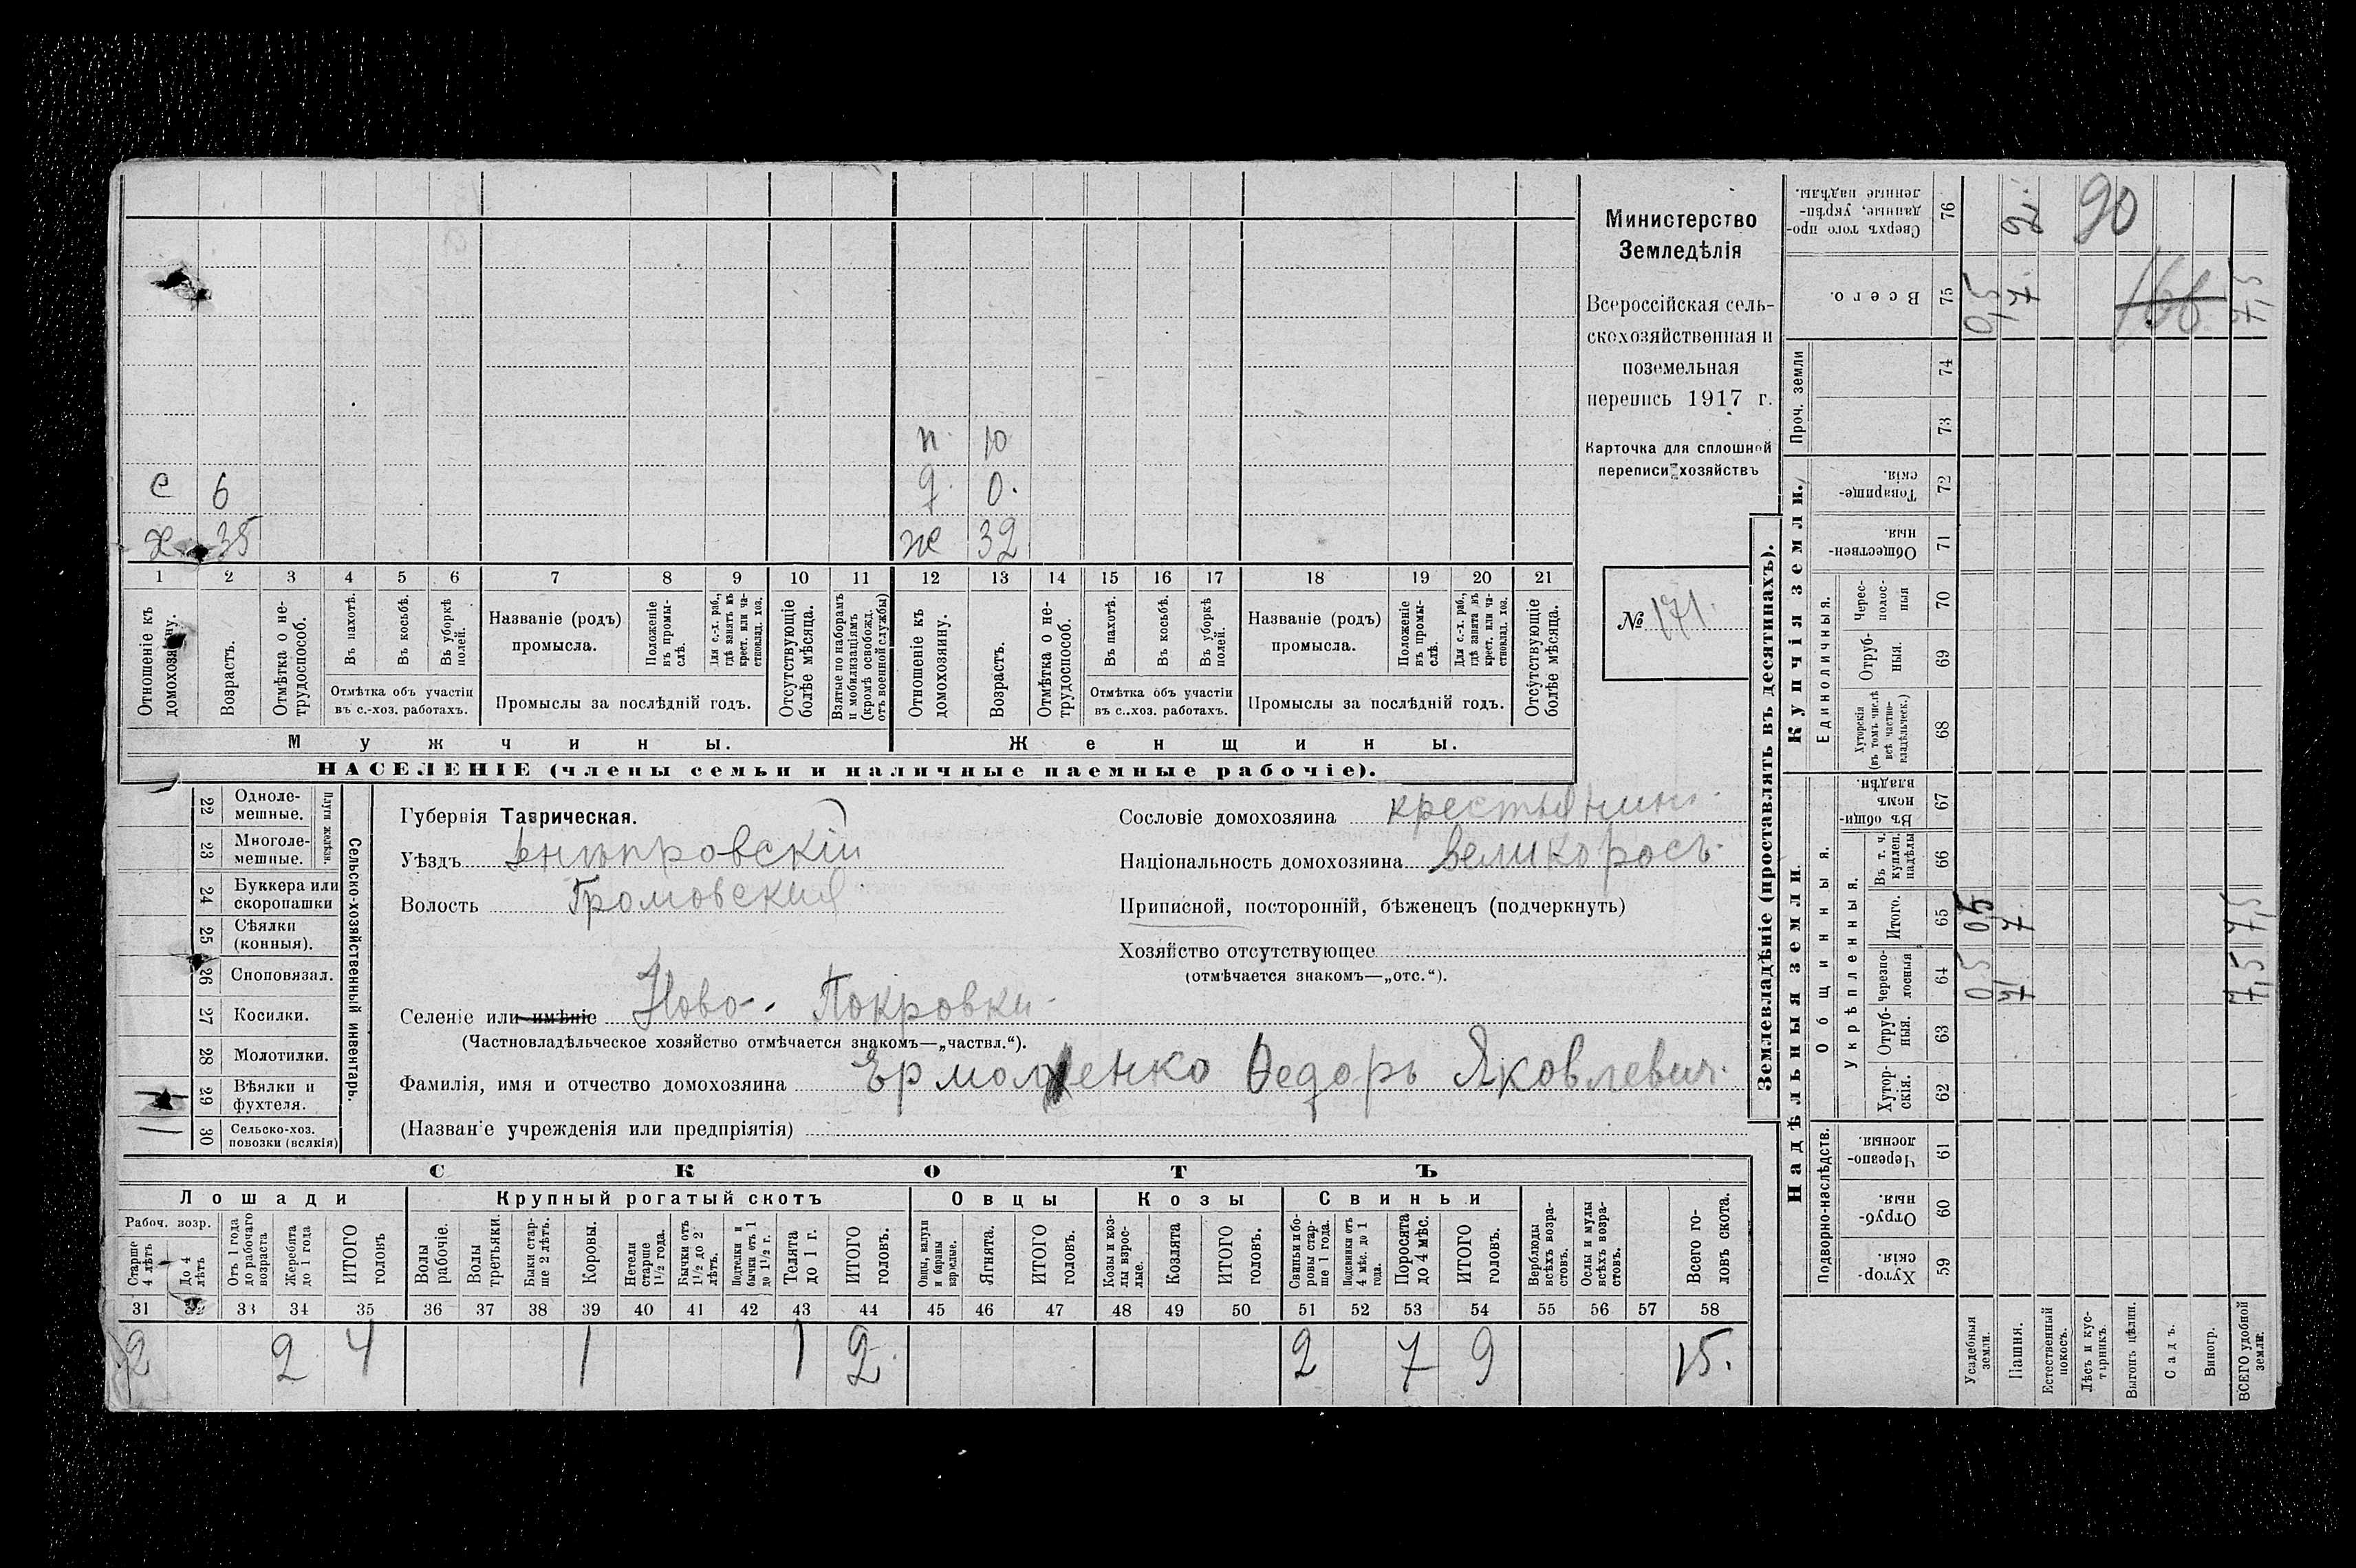 Министерство
Земледѣлія
Всероссійская сель-
скохозяйственная и
поземельная
перепись 1917 г.
Карточка для сплошной
переписи хозяйствъ
№ 171.
п. 10
с 6 д. 0.
х. 35 же 32
1 2 3 4 5 6 7 8 9 10 11 12 13 14 15 16 17 18 19 20 21
Отношеніе къ домохозяину.
Возрастъ.
Отмѣтка о не-трудоспособ.
Въ пахотѣ.
Въ косьбѣ.
Въ уборкѣ полей.
Отмѣтка объ участіи
въ с.-хоз. работахъ.
Названіе (родъ)
промысла.
Положеніе въ промы-слѣ.
Для с.-х. раб., гдѣ занятъ въ крест. или ча-стновлад. хоз.
Промыслы за послѣдній годъ.
Отсутствующіе болѣе мѣсяца.
Взятые по наборамъ и мобилизаціямъ (кромѣ освобожд. отъ военной службы)
Отношеніе къ домохозяину.
Возрастъ.
Отмѣтка о не-трудоспособ.
Въ пахотѣ.
Въ косьбѣ.
Въ уборкѣ полей.
Отмѣтка объ участіи
въ с..хоз. работахъ.
Названіе (родъ)
промысла.
Положеніе въ промы-слѣ.
Для с.-х. раб., гдѣ занята въ крест. или ча-стновлад. хоз.
Промыслы за послѣдній годъ.
Отсутствующіе болѣе мѣсяца.
Мужчины. Женщины.
НАСЕЛЕНІЕ (члены семьи и наличные наемные рабочіе).
22 Одноле-мешные.
23 Многоле-мешные.
Плуги желѣзн.
24 Буккера или скоропашки
25 Сѣялки (конныя).
26 Сноповязал.
27 Косилки.
28 Молотилки.
29 Вѣялки и фухтеля.
30 Сельско-хоз. повозки (всякія)
Сельско-хозяйственный инвентарь.
Губернія Таврическая.
Уѣздъ Днѣпровскій
Волость Громовская
Сословіе домохозяина крестьянинъ.
Національность домохозяина Великоросъ.
Приписной, посторонній, бѣженецъ (подчеркнуть)
Хозяйство отсутствующее
(отмѣчается знакомъ—„отс.“).
Селеніе или имѣніе Ново-Покровки
(Частновладѣльческое хозяйство отмѣчается знакомъ—„частвл.“).
Фамилія, имя и отчество домохозяина Ермоленко Ѳедоръ Яковлевич.
(Названіе учрежденія или предпріятія)
СКОТЪ
Лошади Крупный рогатый скотъ Овцы Козы Свиньи
Рабоч. возр.
Старше 4 лѣтъ
До 4 лѣтъ
Отъ 1 года до рабочаго возраста
Жеребята до 1 года
ИТОГО головъ
Волы рабочіе.
Волы третьяки.
Быки стар-ше 2 лѣтъ.
Коровы.
Нетели старше 1½ года.
Бычки отъ 1½ до 2 лѣтъ.
Подтелки и бычки отъ 1 до 1½ г.
Телята до 1 г.
ИТОГО головъ.
Овцы, валухи и бараны взрослые.
Ягнята.
ИТОГО головъ.
Козы и коз-лы взрос-лые.
Козлята
ИТОГО головъ.
Свиньи и бо-ровы стар-ше 1 года.
Подсвинки отъ 4 мѣс. до 1 года.
Поросята до 4 мѣс.
ИТОГО головъ.
Верблюды всѣхъ возра-стовъ.
Ослы и мулы всѣхъ возра-стовъ.
Всего го-ловъ скота.
31 32 33 34 35 36 37 38 39 40 41 42 43 44 45 46 47 48 49 50 51 52 53 54 55 56 57 58
2 2 4 1 1 2 2 7 9 15.
Землевладѣніе (проставлять въ десятинахъ).
Надѣльныя земли. Купчія земли.
Подворно-наслѣдств. Общинныя. Единоличныя. Проч. земли
Укрѣпленныя.
59 Хутор-скія.
60 Отруб-ныя.
61 Черезпо-лосныя
62 Хутор-скія.
63 Отруб-ныя.
64 Черезпо-лосныя
65 Итого.
66 Въ т. ч. куплен. надѣлы
67 Въ общин-номъ владѣн.
68 Хуторскія (въ томъ числѣ всѣ частно-владѣльческ.)
69 Отруб-ныя.
70 Черес-полос-ныя
71 Обществен-ныя
72 Товарище-скія.
73
74
75 Всего.
76 Сверхъ того про-данные, укрѣп-ленные надѣлы.
Усадебныя земли. 0,5 0,5 0,5
Пашня. 7 7 7
Естественный покосъ.
Лѣсъ и кус-тарникъ.
Выгонъ цѣлин.
Садъ.
Виногр.
ВСЕГО удобной земли. 7,5 7,5 7,5
90
166